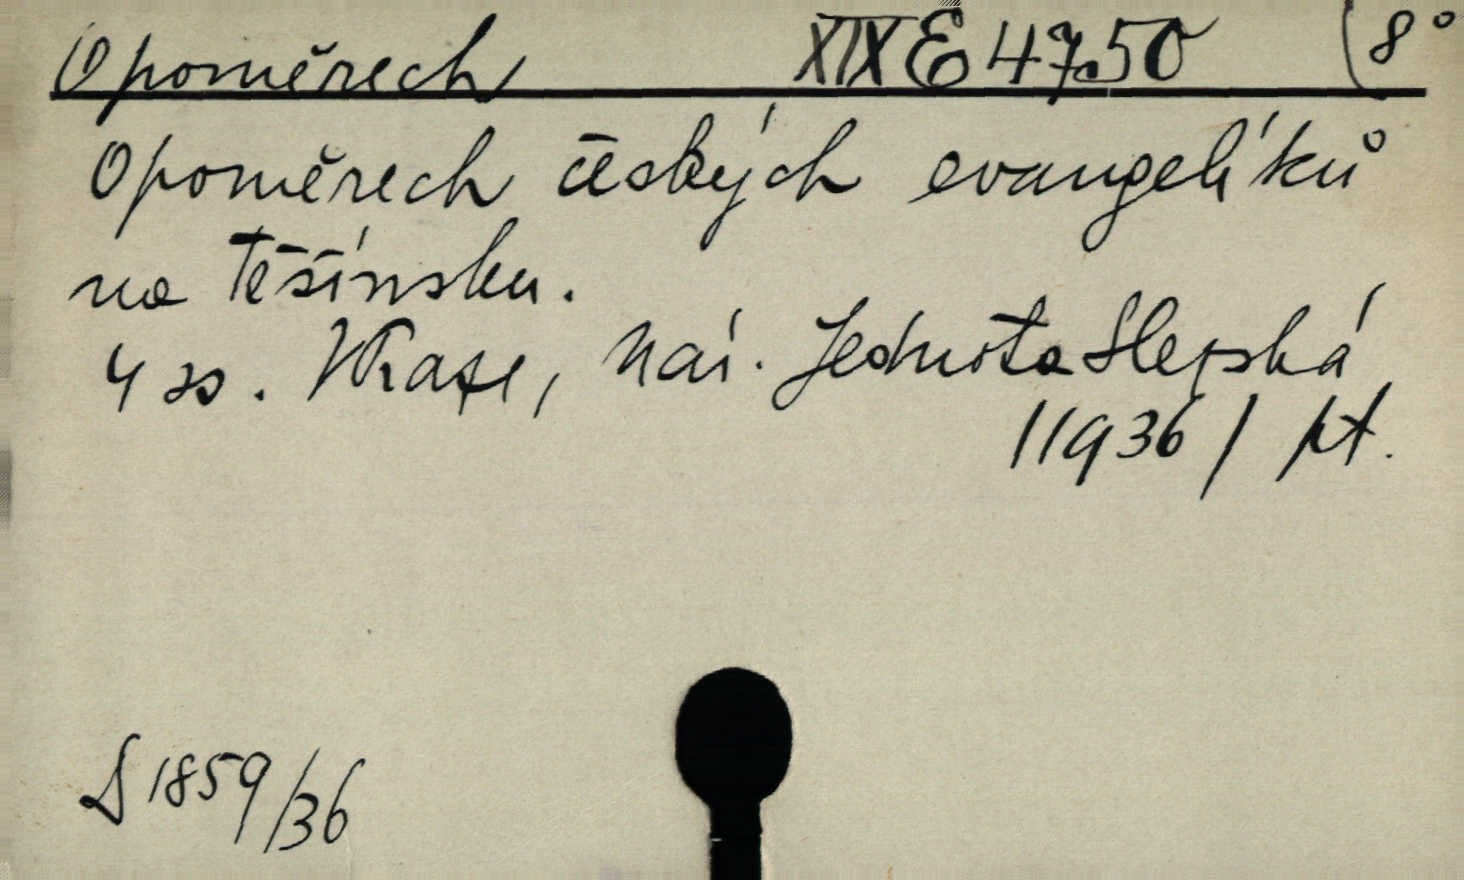 O poměrech XIX E 4750 (8°
O poměrech českých evangelíků
na Těšínsku.
4 ss. V Praze, nái. Jednota Slezská
/1936/ pt.
S 1859/36